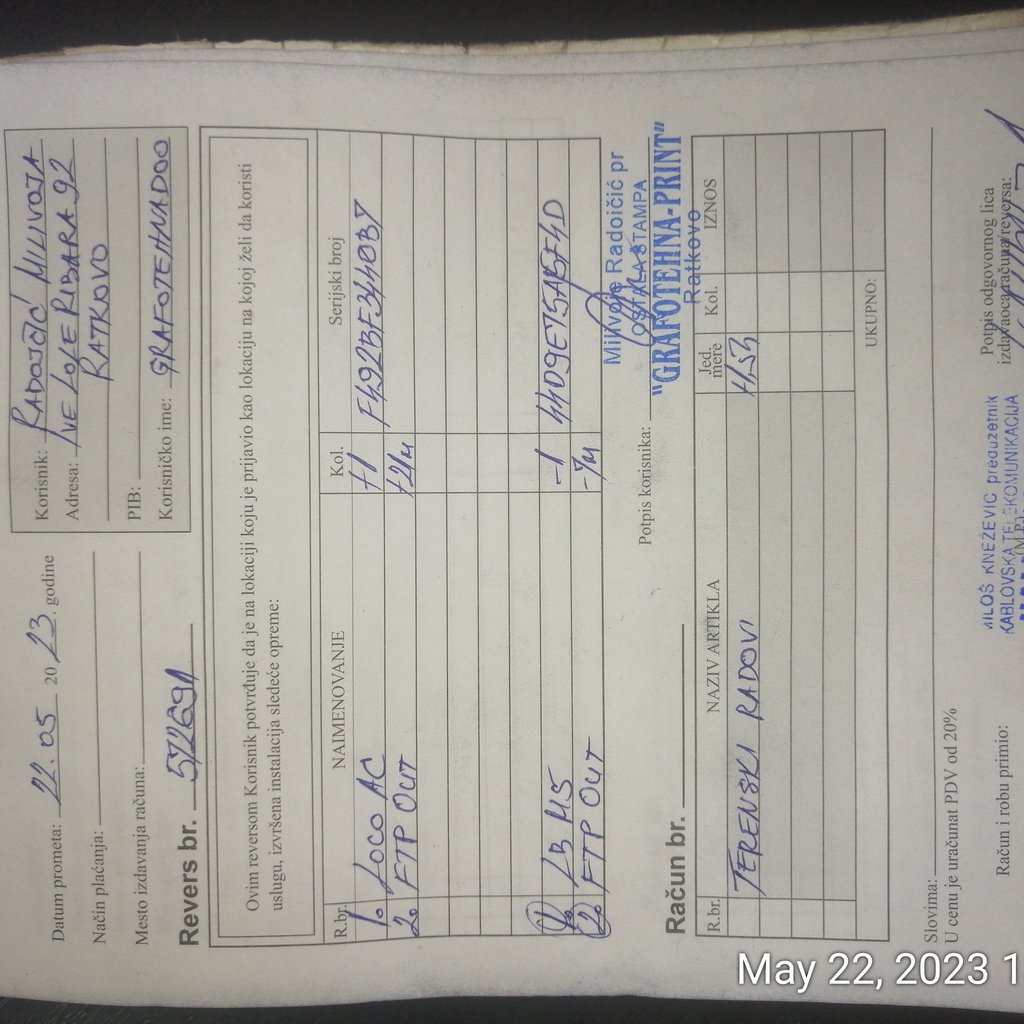 Datum prometa: 22.05 2023. godine
Način plaćanja:
Mesto izdavanja računa:
Korisnik: RADOJČIĆ MILIVOJA
Adresa: IVE LOLE RIBARA 92
RATKOVO
PIB:
Korisničko ime: GRAFOTEHNADOO
Revers br. 572691
Ovim reversom Korisnik potvrđuje da je na lokaciji koju je prijavio kao lokaciju na kojoj želi da koristi
uslugu, izvršena instalacija sledeće opreme:
R.br. NAIMENOVANJE Kol. Serijski broj
1. LOCO AC +1 F492BF3440B7
2. FTP OUT +21m
1. LB M5 -1
2. FTP OUT -7m
Potpis korisnika:
Milivoje Radoičić pr
OSTALA ŠTAMPA
"GRAFOTEHNA-PRINT"
Ratkovo
Račun br.
R.br. NAZIV ARTIKLA Jed. mere Kol. IZNOS
TERENSKI RADOVI
UKUPNO:
Slovima:
U cenu je uračunat PDV od 20%
Račun i robu primio:
MILOŠ KNEŽEVIĆ preduzetnik
KABLOVSKA TELEKOMUNIKACIJA
(M.P.)
Potpis odgovornog lica
izdavaoca računa/reversa:
May 22, 2023 1